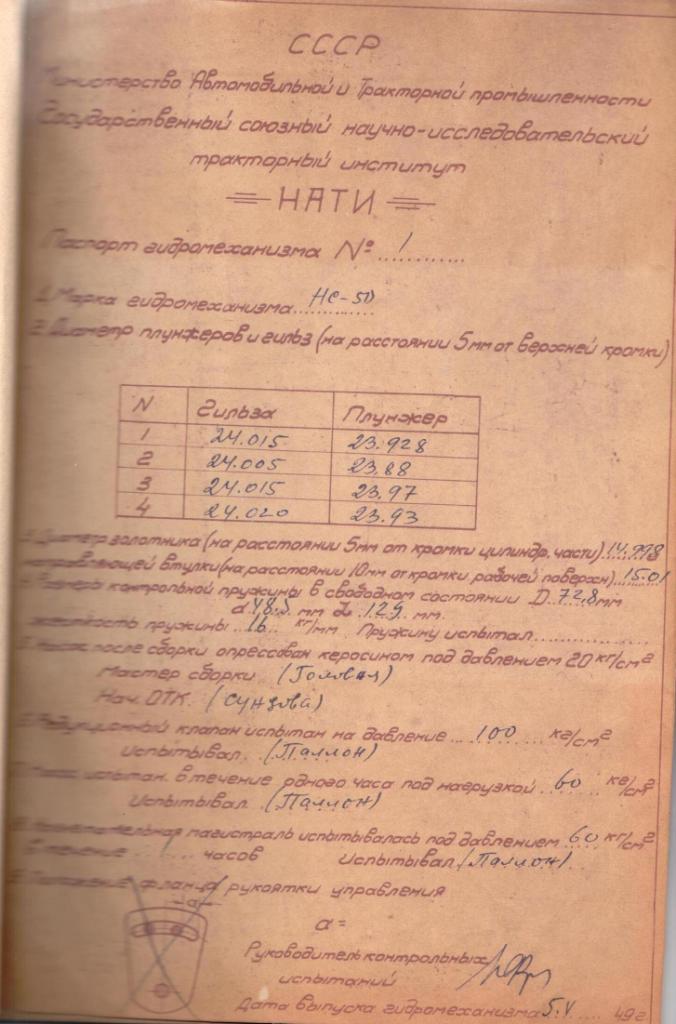 СССР
Министерство Автомобильной и Тракторной промышленности
Государственный союзный научно-исследовательский
тракторный институт
НАТИ
Паспорт гидромеханизма № 1
1. Марка гидромеханизма НС-50
2. Диаметр плунжеров и гильз (на расстоянии 5 мм от верхней кромки)
N Гильза Плунжер
1 24.015 23.928
2 24.005 23.88
3 24.015 23.97
4 24.020 23.93
3. Диаметр золотника (на расстоянии 5мм от кромки цилиндр. части) 14.998
направляющей втулки (на расстоянии 10мм от кромки рабочей поверхн) 15.01
4. Размеры контрольной пружины в свободном состоянии D 72,8 мм
d мм 129 мм.
жесткость пружины 16 кг/мм Пружину испытал
5. Насос после сборки опрессован керосином под давлением 20 кг/см²
Мастер сборки (Головая)
Нач. ОТК. (Сунзова)
6. Редукционный клапан испытан на давление 100 кг/см²
Испытывал (Паллон)
7. Насос испытан в течение одного часа под нагрузкой 60 кг/см²
Испытывал (Паллон)
8. Нагнетательная магистраль испытывалась под давлением 60 кг/см²
в течение 1 часов Испытывал (Паллон)
9. Положение фланца рукоятки управления
a
α =
Руководитель контрольных
испытаний
Дата выпуска гидромеханизма 5.V 49 г